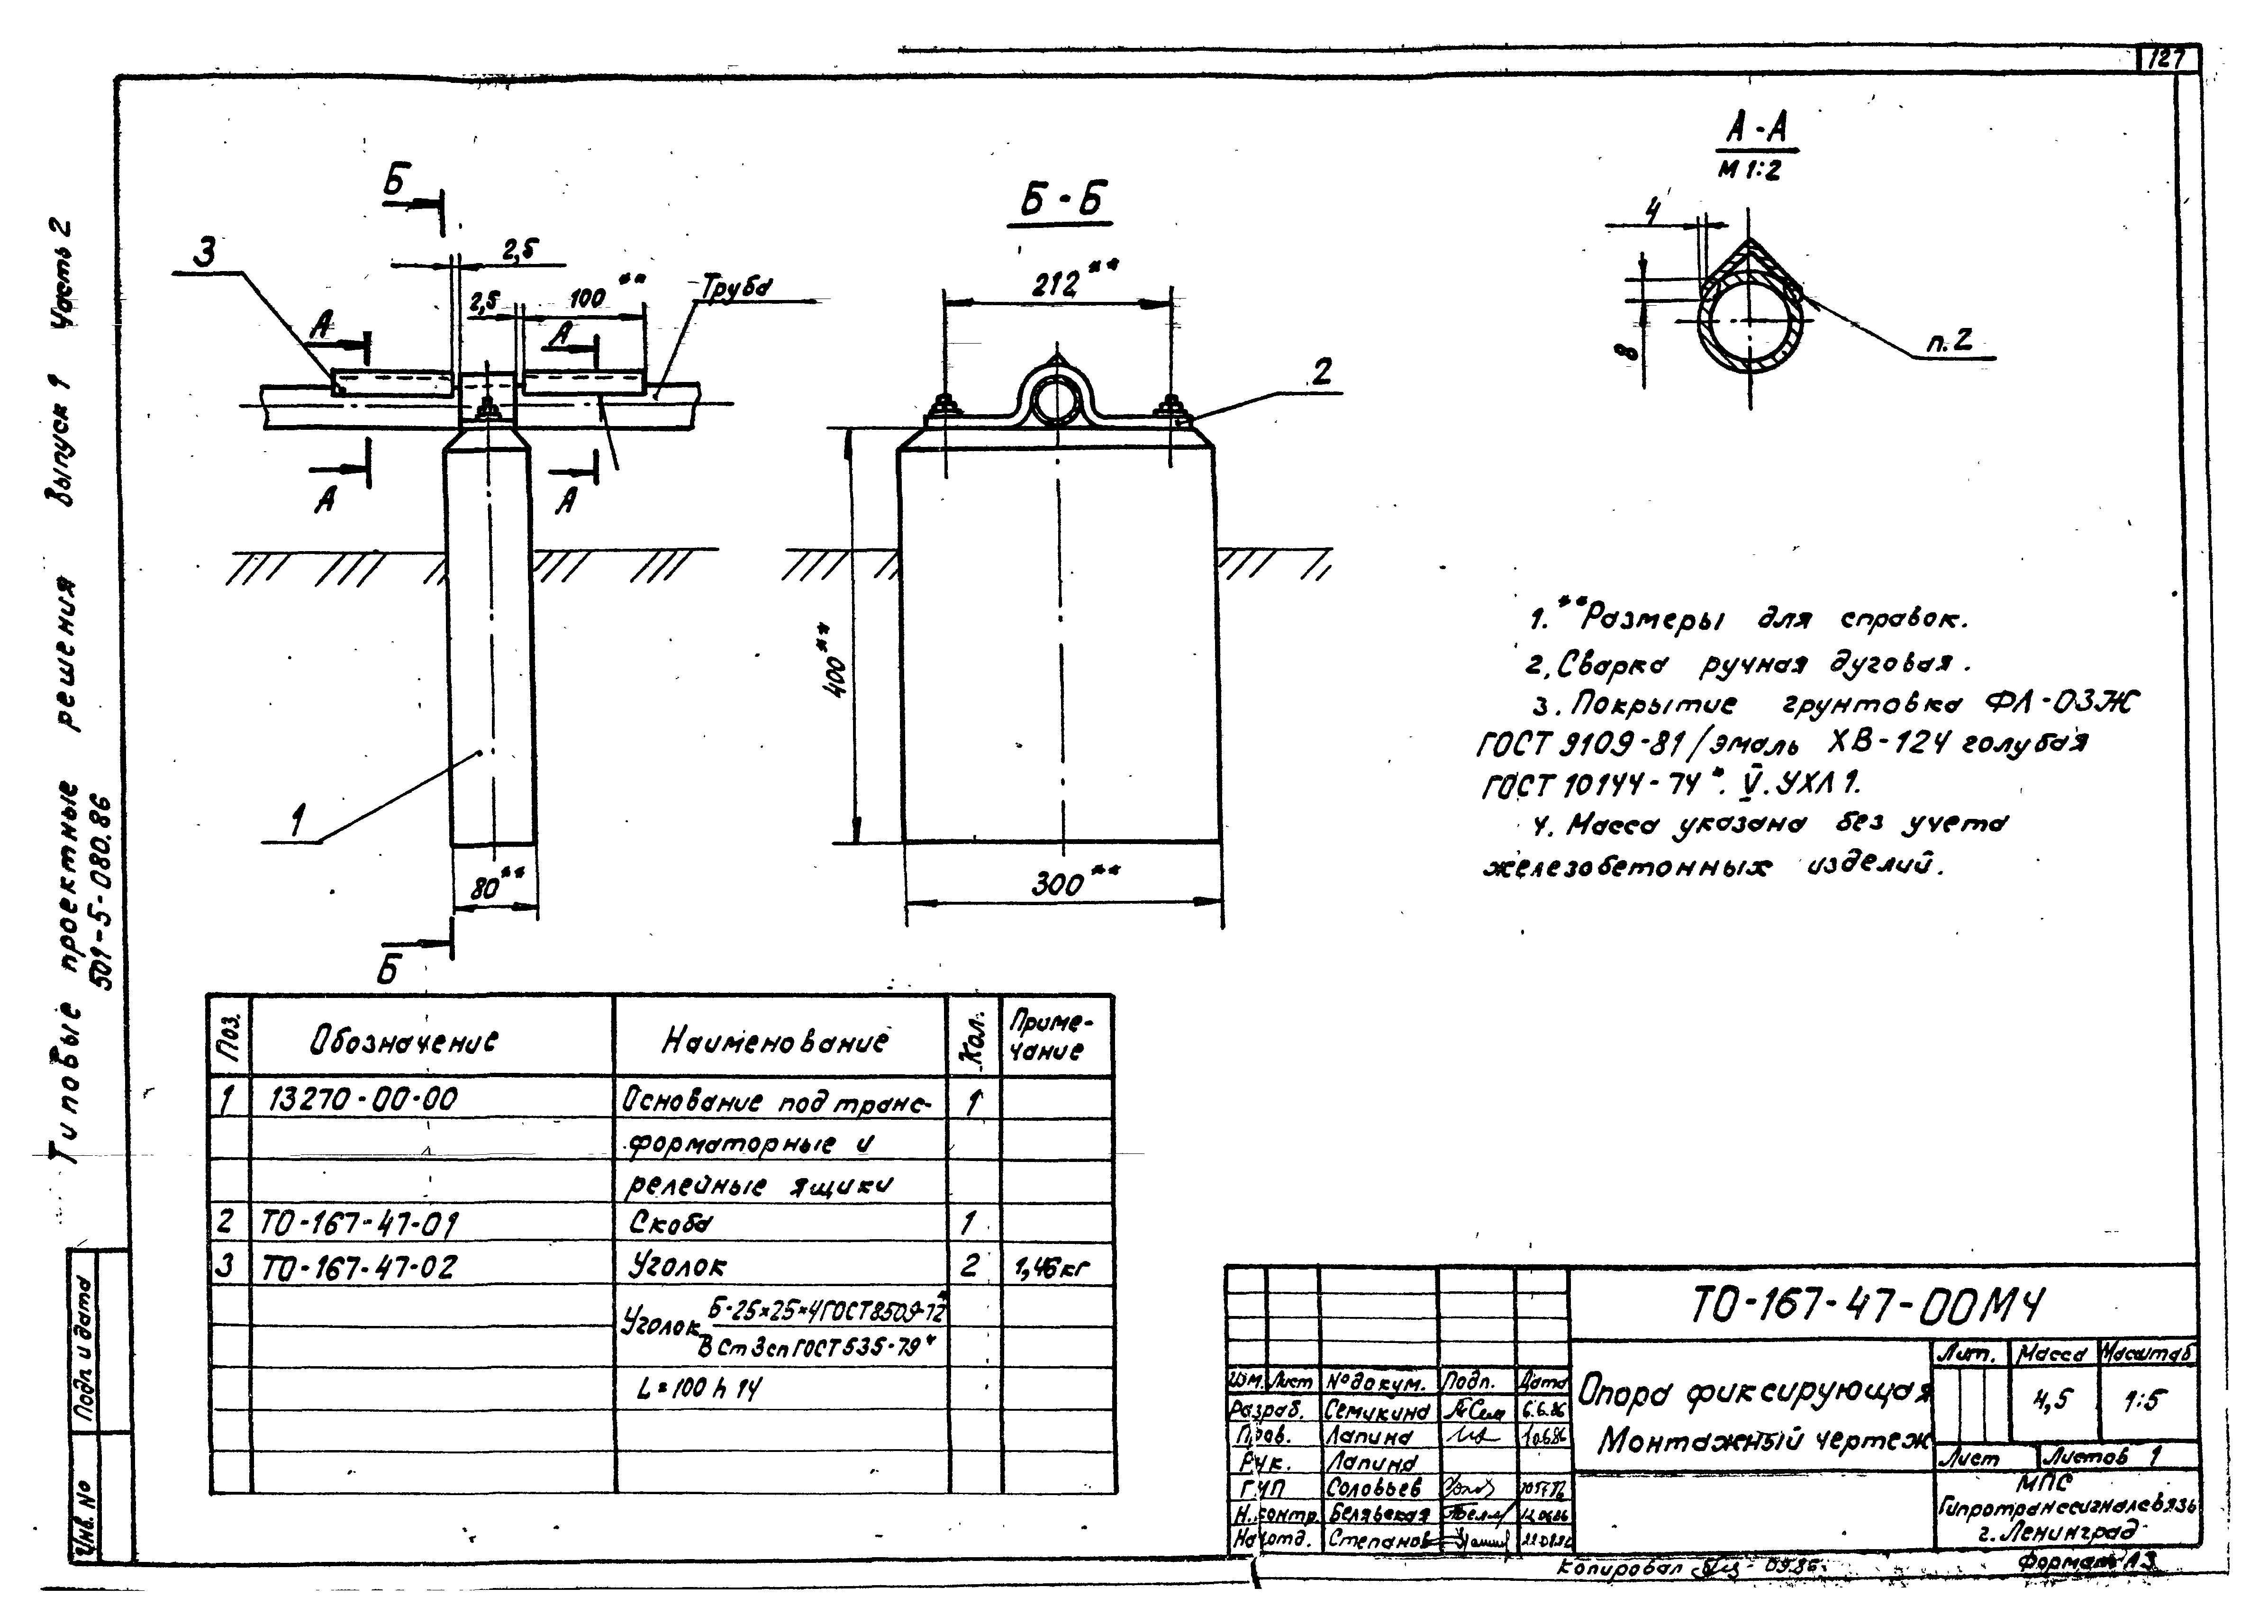 127
Типовые проектные решения Выпуск 1 Часть 2
501-5-080.86
Б
3
2,5
2,5
100**
Труба
А
А
А
А
1
80**
Б
Б-Б
212**
2
400**
300**
А-А
М 1:2
4
8
п.2
1.**Размеры для справок.
2.Сварка ручная дуговая.
3.Покрытие грунтовка ФЛ-03Ж
ГОСТ 9109-81/эмаль ХВ-124 голубая
ГОСТ 10144-74*. V. УХЛ 1.
4. Масса указана без учета
железобетонных изделий.
Поз. Обозначение Наименование Кол. Приме-
чание
1 13270-00-00 Основание под транс- 1
форматорные и
релейные ящики
2 ТО-167-47-01 Скоба 1
3 ТО-167-47-02 Уголок 2 1,46кг
Б-25×25×4ГОСТ8509-72*
Уголок
ВСт3сп ГОСТ535-79*
L=100 h 14
Подп. и дата
Инв. №
ТО-167-47-00МЧ
Опора фиксирующая
Монтажный чертеж
Лит. Масса Масштаб
4,5 1:5
Лист Листов 1
Изм. Лист № докум. Подп. Дата
Разраб. Семикина 6.6.86
Пров. Лапина 10.6.86
Рук. Лапина
ГИП Соловьев
Н.контр. Белявская
Нач.отд. Степанов
МПС
Гипротранссигналсвязь
г.Ленинград
Копировал
Формат А3